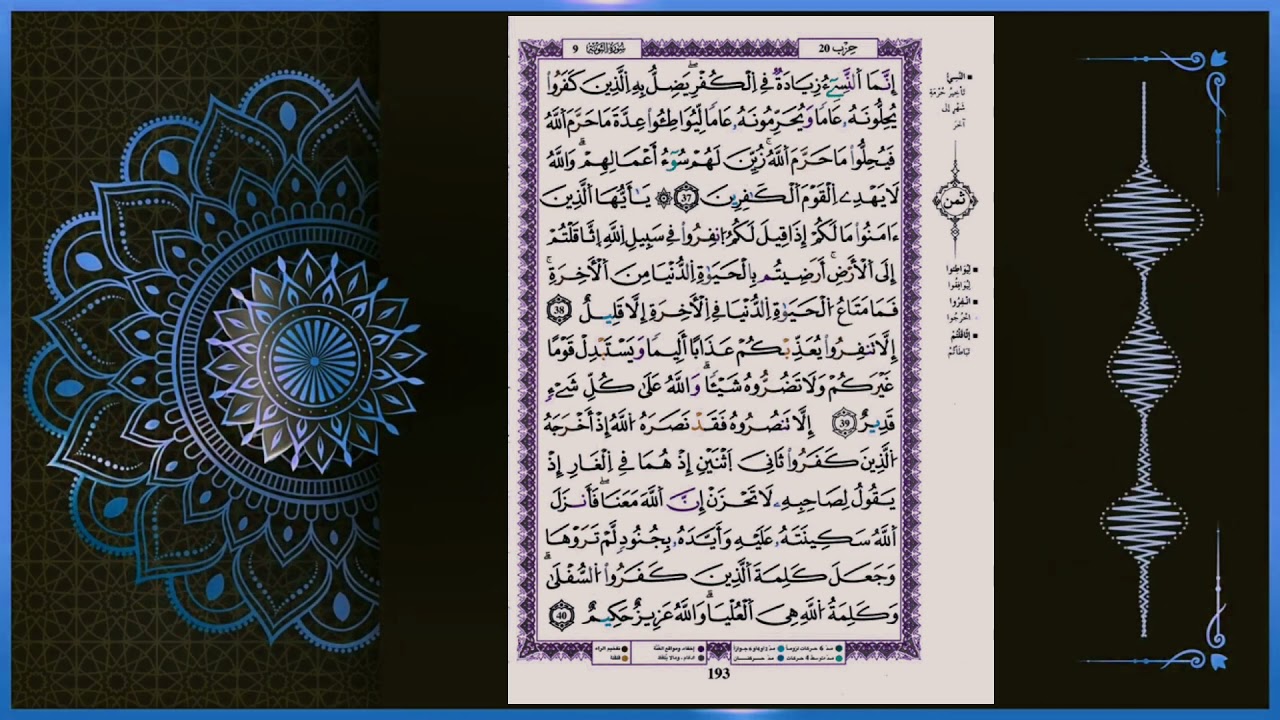 حزب 20
سورة التوبة 9
إِنَّمَا ٱلنَّسِيٓءُ زِيَادَةٞ فِي ٱلْكُفْرِۖ يَضِلُّ بِهِ ٱلَّذِينَ كَفَرُوا۟
يُحِلُّونَهُۥ عَامٗا وَيُحَرِّمُونَهُۥ عَامٗا لِّيُوَاطِـُٔوا۟ عِدَّةَ مَا حَرَّمَ ٱللَّهُ
فَيُحِلُّوا۟ مَا حَرَّمَ ٱللَّهُۚ زُيِّنَ لَهُمْ سُوٓءُ أَعْمَالِهِمْۗ وَٱللَّهُ
لَا يَهْدِي ٱلْقَوْمَ ٱلْكَٰفِرِينَ 37 يَٰٓأَيُّهَا ٱلَّذِينَ
ءَامَنُوا۟ مَا لَكُمْ إِذَا قِيلَ لَكُمُ ٱنفِرُوا۟ فِي سَبِيلِ ٱللَّهِ ٱثَّاقَلْتُمْ
إِلَى ٱلْأَرْضِۚ أَرَضِيتُم بِٱلْحَيَوٰةِ ٱلدُّنْيَا مِنَ ٱلْأٓخِرَةِۚ
فَمَا مَتَاعُ ٱلْحَيَوٰةِ ٱلدُّنْيَا فِي ٱلْأٓخِرَةِ إِلَّا قَلِيلٌ 38
إِلَّا تَنفِرُوا۟ يُعَذِّبْكُمْ عَذَابًا أَلِيمٗا وَيَسْتَبْدِلْ قَوْمًا
غَيْرَكُمْ وَلَا تَضُرُّوهُ شَيْـٔٗاۗ وَٱللَّهُ عَلَىٰ كُلِّ شَيْءٖ
قَدِيرٌ 39 إِلَّا تَنصُرُوهُ فَقَدْ نَصَرَهُ ٱللَّهُ إِذْ أَخْرَجَهُ
ٱلَّذِينَ كَفَرُوا۟ ثَانِيَ ٱثْنَيْنِ إِذْ هُمَا فِي ٱلْغَارِ إِذْ
يَقُولُ لِصَٰحِبِهِۦ لَا تَحْزَنْ إِنَّ ٱللَّهَ مَعَنَاۖ فَأَنزَلَ
ٱللَّهُ سَكِينَتَهُۥ عَلَيْهِ وَأَيَّدَهُۥ بِجُنُودٖ لَّمْ تَرَوْهَا
وَجَعَلَ كَلِمَةَ ٱلَّذِينَ كَفَرُوا۟ ٱلسُّفْلَىٰۗ
وَكَلِمَةُ ٱللَّهِ هِيَ ٱلْعُلْيَاۗ وَٱللَّهُ عَزِيزٌ حَكِيمٌ 40
النَّسِيءُ
تَأخِيرُ حُرْمَةِ
شَهْرٍ إلى
آخَرَ
ثمن
لِيُوَاطِئُوا
لِيُوَافِقُوا
انْفِرُوا
اخْرُجُوا
اثَّاقَلْتُمْ
تَبَاطَأْتُمْ
مدّ 6 حركات لزوماً
مدّ 2 أو 4 أو 6 جوازاً
إخفاء، ومواقع الغُنَّة
تفخيم الراء
مدّ حركتان
إدغام، وما لا يُلفَظ
قلقلة
193